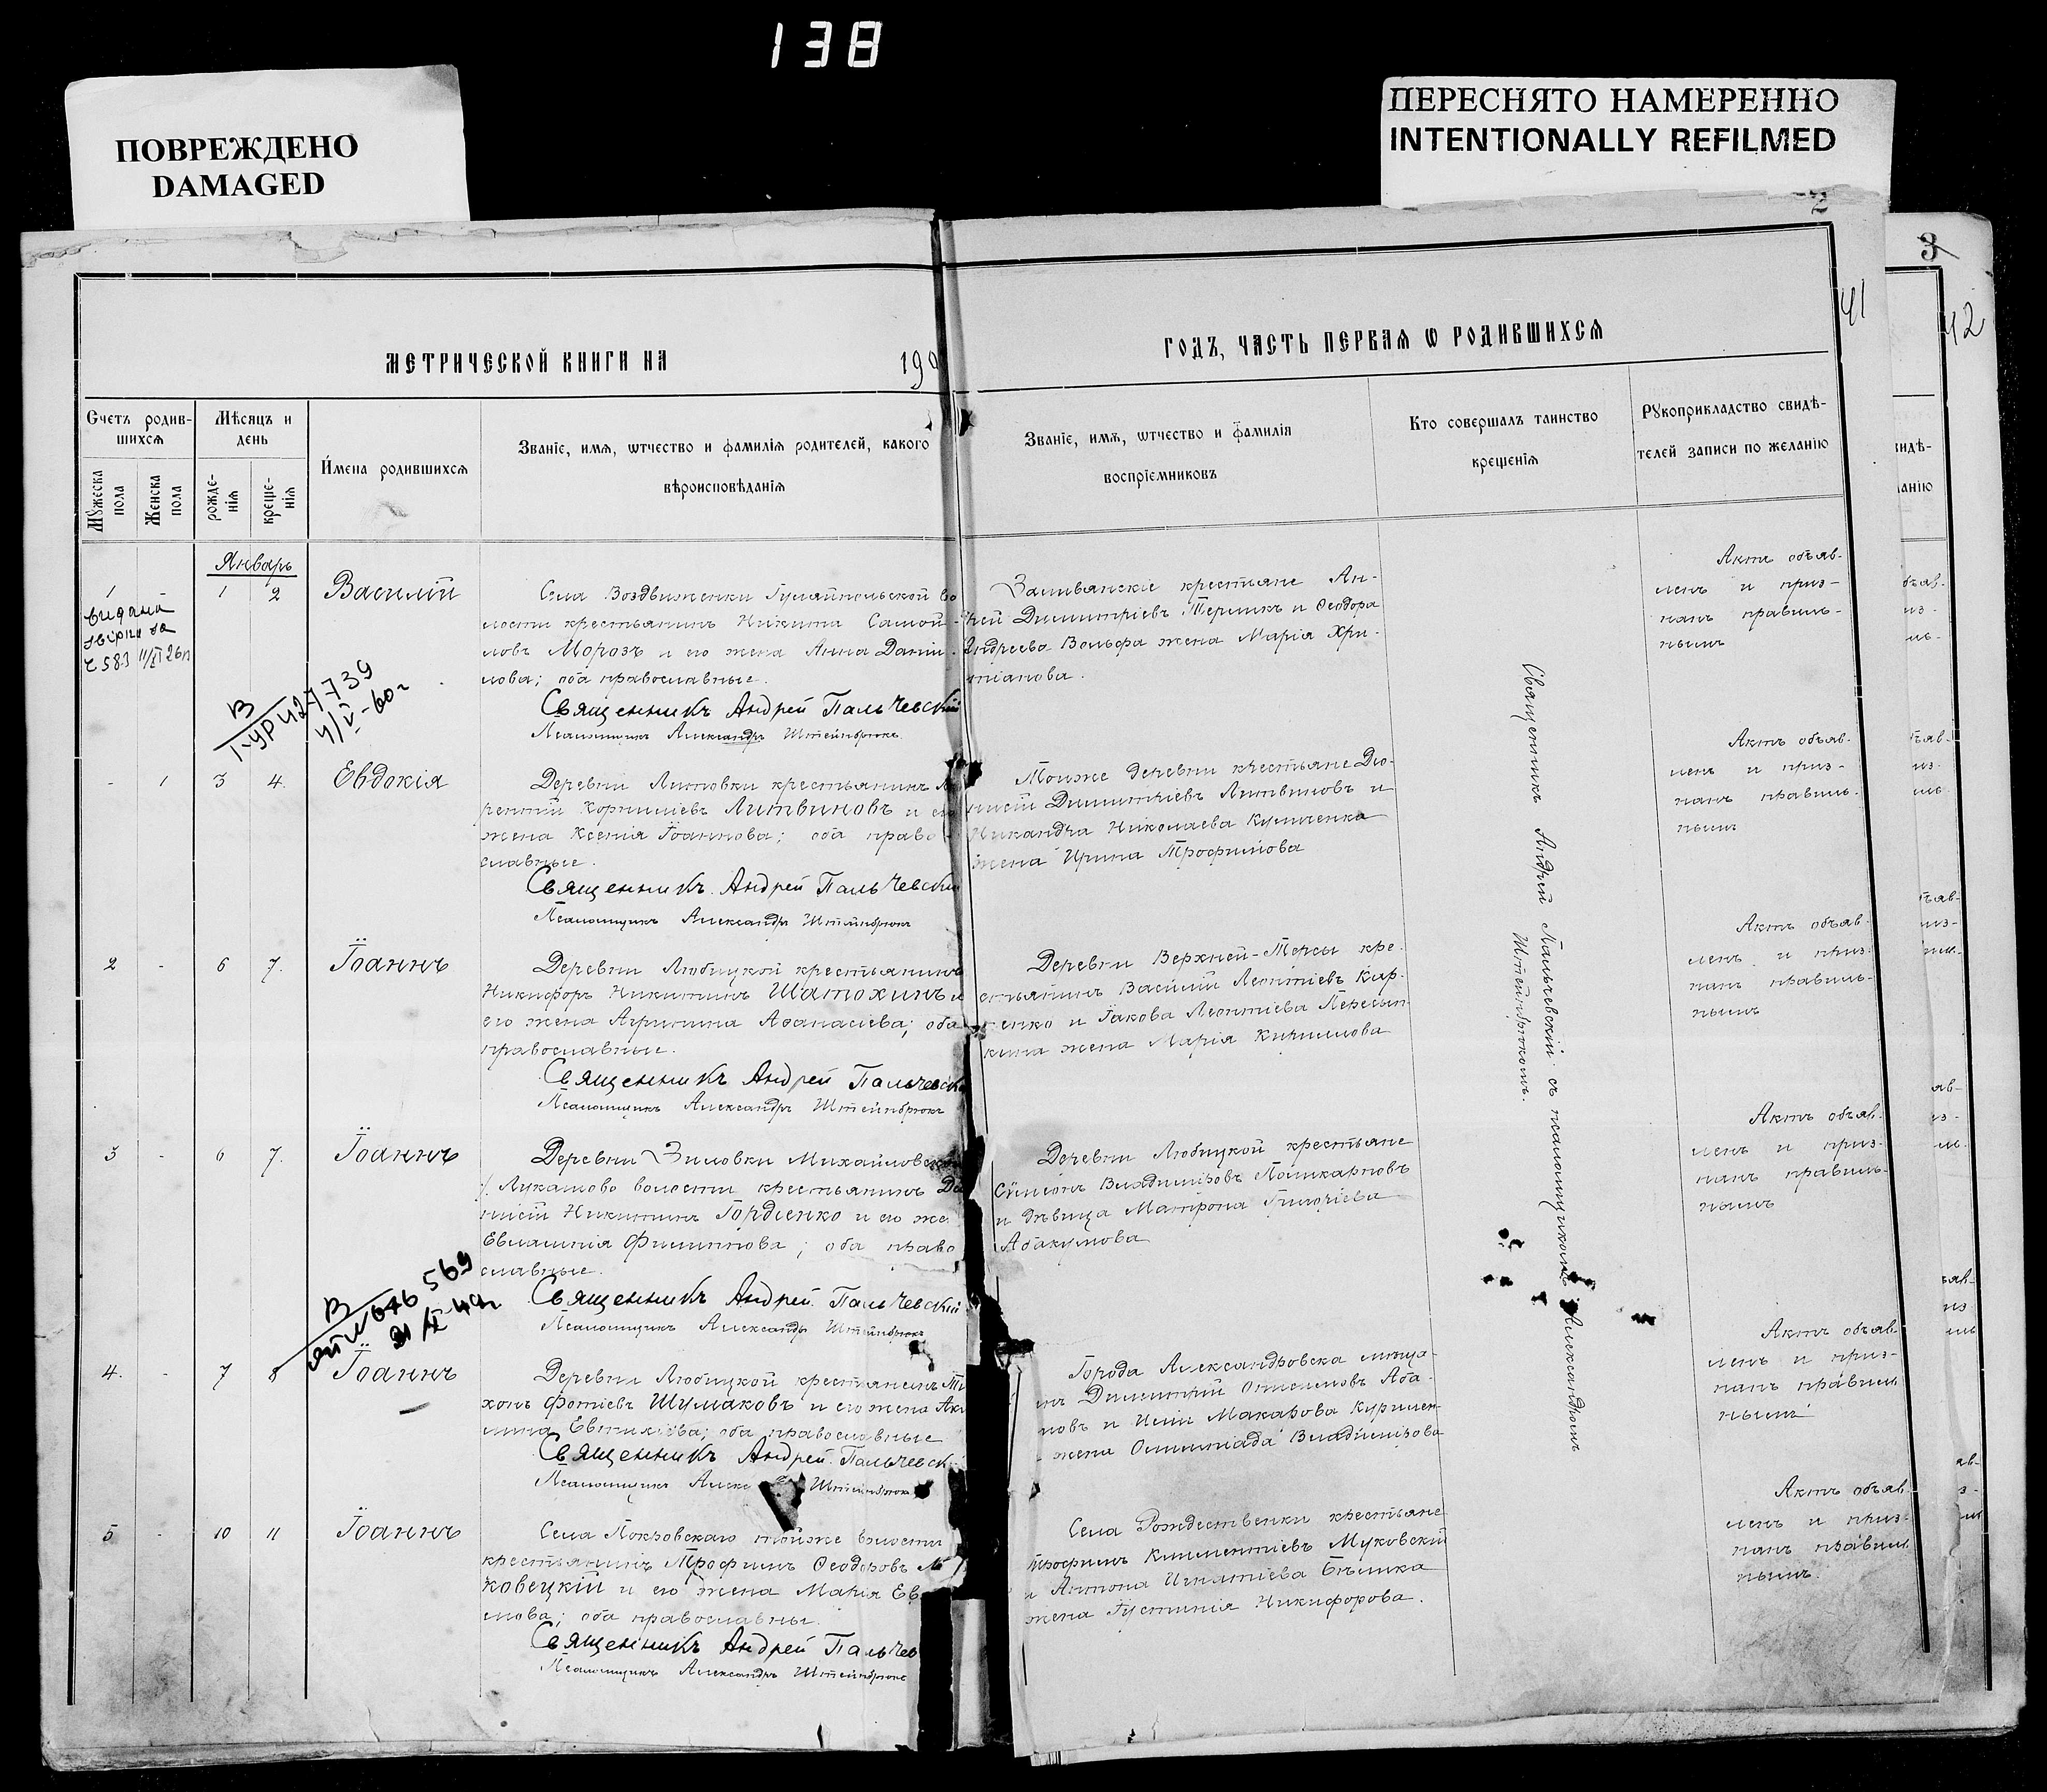 138
ПОВРЕЖДЕНО
DAMAGED
ПЕРЕСНЯТО НАМЕРЕННО
INTENTIONALLY REFILMED
2
3
41
42
МЕТРИЧЕСКОЙ КНИГИ НА 190
ГОДЪ, ЧАСТЬ ПЕРВАЯ Ѡ РОДИВШИХСЯ
Счетъ родив-
шихся
Мужеска пола
Женска пола
Мѣсяцъ и
день
рожде-
нія
креще-
нія
Имена родившихся
Званіе, имя, ѿчество и фамилія родителей, какого
вѣроисповѣданія
Званіе, имя, ѿчество и фамилія
воспріемниковъ
Кто совершалъ таинство
крещенія
Рукоприкладство свидѣ-
телей записи по желанію
Январь
1 1 2 Василій
Села Воздвиженки Гуляйпольской во
лости крестьянинъ Никита Самой-
ловъ Морозъ и его жена Анна Даніи-
лова; оба православные.
Священникъ Андрей Пальчевскій
Псаломщикъ Александръ Штейнбрюкъ
крестьяне Ан-
рей Димитріевъ Терликъ и Ѳеодора
Андреева Вольфа жена Марія Хри-
тіанова.
Актъ объяв-
ленъ и приз-
нанъ правиль-
нымъ
В
427739
4/V-60г
- 1 3 4. Евдокія
Деревни Литовки крестьянинъ
рентій Корниліевъ Литвиновъ и его
жена Ксенія Іоаннова; оба право-
славные.
Священникъ Андрей Пальчевскій
Псаломщикъ Александръ Штейнбрюкъ
Тойже деревни крестьяне Дио-
нисій Димитріевъ Литвиновъ и
Никандра Николаева Кузьменка
жена Ирина Трофимова
Актъ объяв-
ленъ и приз-
нанъ правиль-
нымъ
2 - 6 7. Іоаннъ
Деревни Любицкой крестьянинъ
Никифоръ Никитинъ Шатохинъ и
его жена Агрипина Аѳанасіева; оба
православные.
Священникъ Андрей Пальчевск
Псаломщикъ Александръ Штейнбрюкъ
Деревни Верхней-Терсы кре-
стьянинъ Василій Леонтіевъ Кир-
енко и Іакова Леонтіева Пересып-
кина жена Марія Кириллова
Актъ объяв-
ленъ и приз-
нанъ правиль-
нымъ
3 - 6 7. Іоаннъ
Деревни Зиловки Михайловско
Лукашово волости крестьянинъ Ди
нисій Никитинъ Гордіенко и его же
Евлампія Филиппова; оба право
славные.
Священникъ Андрей Пальчевскій
Псаломщикъ Александръ Штейнбрюкъ
Деревни Любицкой крестьяне
Сѵмеонъ Владиміровъ Поликарповъ
и дѣвица Матрона Григоріева
Абакумова
Актъ объяв-
ленъ и приз-
нанъ правиль-
нымъ
4. - 7 8 Іоаннъ
Деревни Любицкой крестьянинъ Ти
хонъ Фотіевъ Шумаковъ и его жена Аки
лина Евтихіева; оба православные
Священникъ Андрей Пальчевск
Псаломщикъ Алекс Штейнбрюкъ
Города Александровска мѣща-
инъ Димитрій Аба-
мовъ и Исіи Макарова Курилен-
жена Олимпіада Владимірова
Актъ объяв-
ленъ и приз-
нанъ правиль
нымъ
5 - 10 11 Іоаннъ
Села Покровскаго тойже волости
крестьянинъ Трофимъ Ѳеодоровъ
ковецкій и его жена Марія Ев
мова; оба православны.
Священникъ Андрей Пальчев
Псаломщикъ Александръ Штейнбрюкъ
Села Рождественки крестьяне
Трофимъ Климентіевъ Муковскій
и Антона Игнатіева Бѣлика
жена Іустинія Никифорова.
Актъ объяв
ленъ и приз
нанъ правил
нымъ.
Священникъ Андрей Пальчевскій съ псаломщикомъ Александромъ
Штейнбрюкомъ.